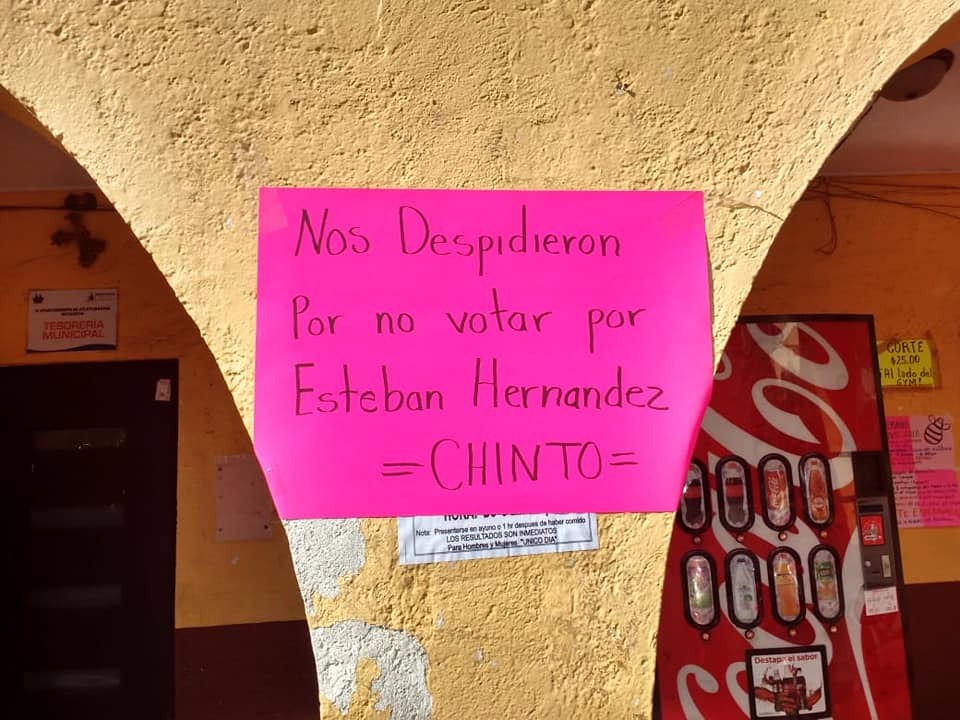 Nos Despidieron
Por no votar por
Esteban Hernandez
=CHINTO=
Nota: Presentarse en ayuno o 1 hr despues de haber comido
LOS RESULTADOS SON INMEDIATOS
Para Hombres y Mujeres "UNICO DIA"
TESORERÍA
MUNICIPAL
CORTE
$25.00
lado del
GYM!
Destapa el sabor